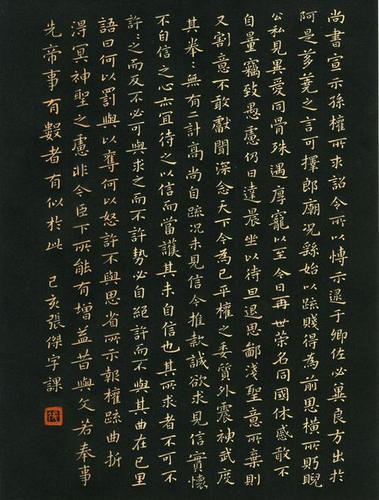 尚書宣示孫權所求詔令所以博示逮于卿佐必冀良方出於
阿是芻蕘之言可擇郎廟況繇始以疏賤得為前思橫所眄睨
公私見異愛同骨殊遇厚寵以至今日再世榮名同國休慼敢不
自量竊致愚慮仍日達晨坐以待旦退思鄙淺聖意所棄則
又割意不敢獻聞深念天下今為已平權之委質外震神武度
其拳〻無有二計高尚自疏況未見信今推款誠欲求見信實懷
不自信之心亦宜待之以信而當護其未自信也其所求者不可不
許〻之而反不必可與求之而不許勢必自絕許而不與其曲在己里
語曰何以罰與以奪何以怒許不與思省所示報權疏曲折
得冥神聖之慮非今臣下所能有增益昔與文若奉事
先帝事有數者有似於此 己亥張傑字課